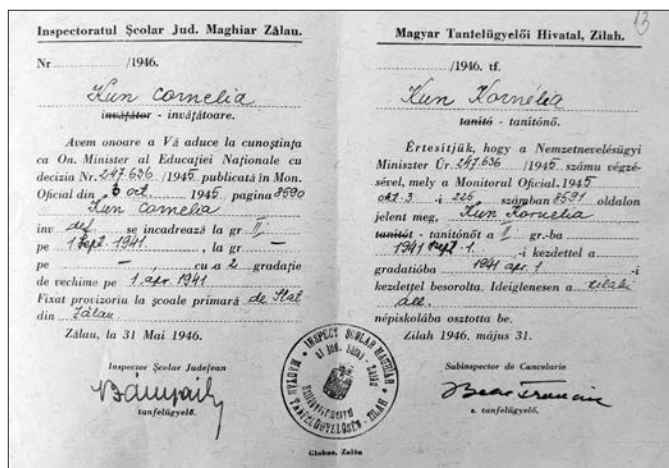 13
Inspectoratul Școlar Jud. Maghiar Zălau.
Nr /1946.
Kun Cornelia
invățător - invățătoare.
Avem onoare a Vă aduce la cunoștința
ca On. Minister al Educației Naționale cu
decizia Nr. 247.636 /1945 publicată în Mon.
Oficial din 3 oct. 1945, pagina 8590
Kun Cornelia
inv def. se incadrează la gr II.
pe 1 Sept. 1941 , la gr —
pe — , cu a 2 gradație
de vechime pe 1. apr. 1941
Fixat provizoriu la școale primară de Stat
din Zălau.
Zălau, la 31 Mai 1946.
Inspector Școlar Județean
tanfelügyelő.
Magyar Tanfelügyelői Hivatal, Zilah.
/1946. tf.
Kun Kornélia
tanító - tanítónő.
Értesítjük, hogy a Nemzetnevelésügyi
Miniszter Úr 247.636 /1945 számu végzé-
sével, mely a Monitorul Oficial. 1945
okt. 3 -i 226 számban 8591 oldalon
jelent meg, Kun Kornelia
tanítót - tanítónőt a II. gr.-ba
1941 sept. 1. -i kezdettel a
gradatióba 1941 apr. 1
kezdettel besorolta. Ideiglenesen a zilahi
áll.
népiskolába osztotta be.
Zilah 1946. május 31.
Subinspector de Cancelarie
s. tanfelügyelő.
Globus, Zalău